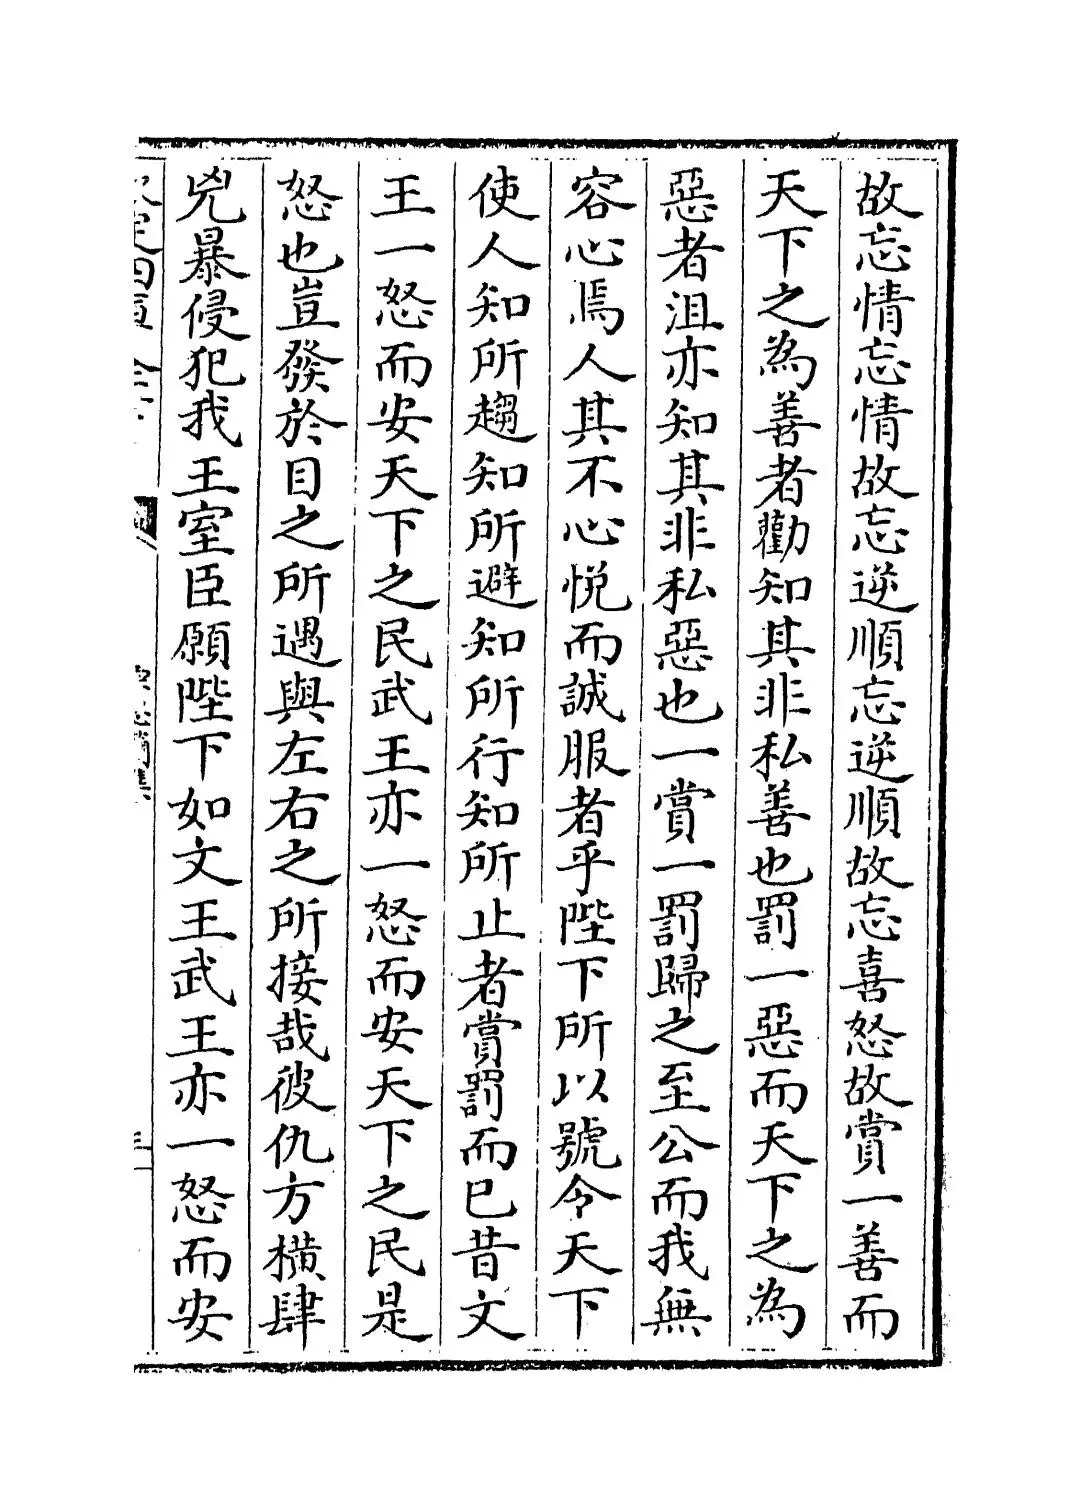 故忘情忘情故忘逆順忘逆順故忘喜怒故賞一善而
天下之為善者勸知其非私善也罰一惡而天下之為
惡者沮亦知其非私惡也一賞一罰歸之至公而我無
容心焉人其不心悦而誠服者乎陛下所以號令天下
使人知所趨知所避知所行知所止者賞罰而已昔文
王一怒而安天下之民武王亦一怒而安天下之民是
怒也豈發於目之所遇與左右之所接哉彼仇方横肆
兇暴侵犯我王室臣願陛下如文王武王亦一怒而安